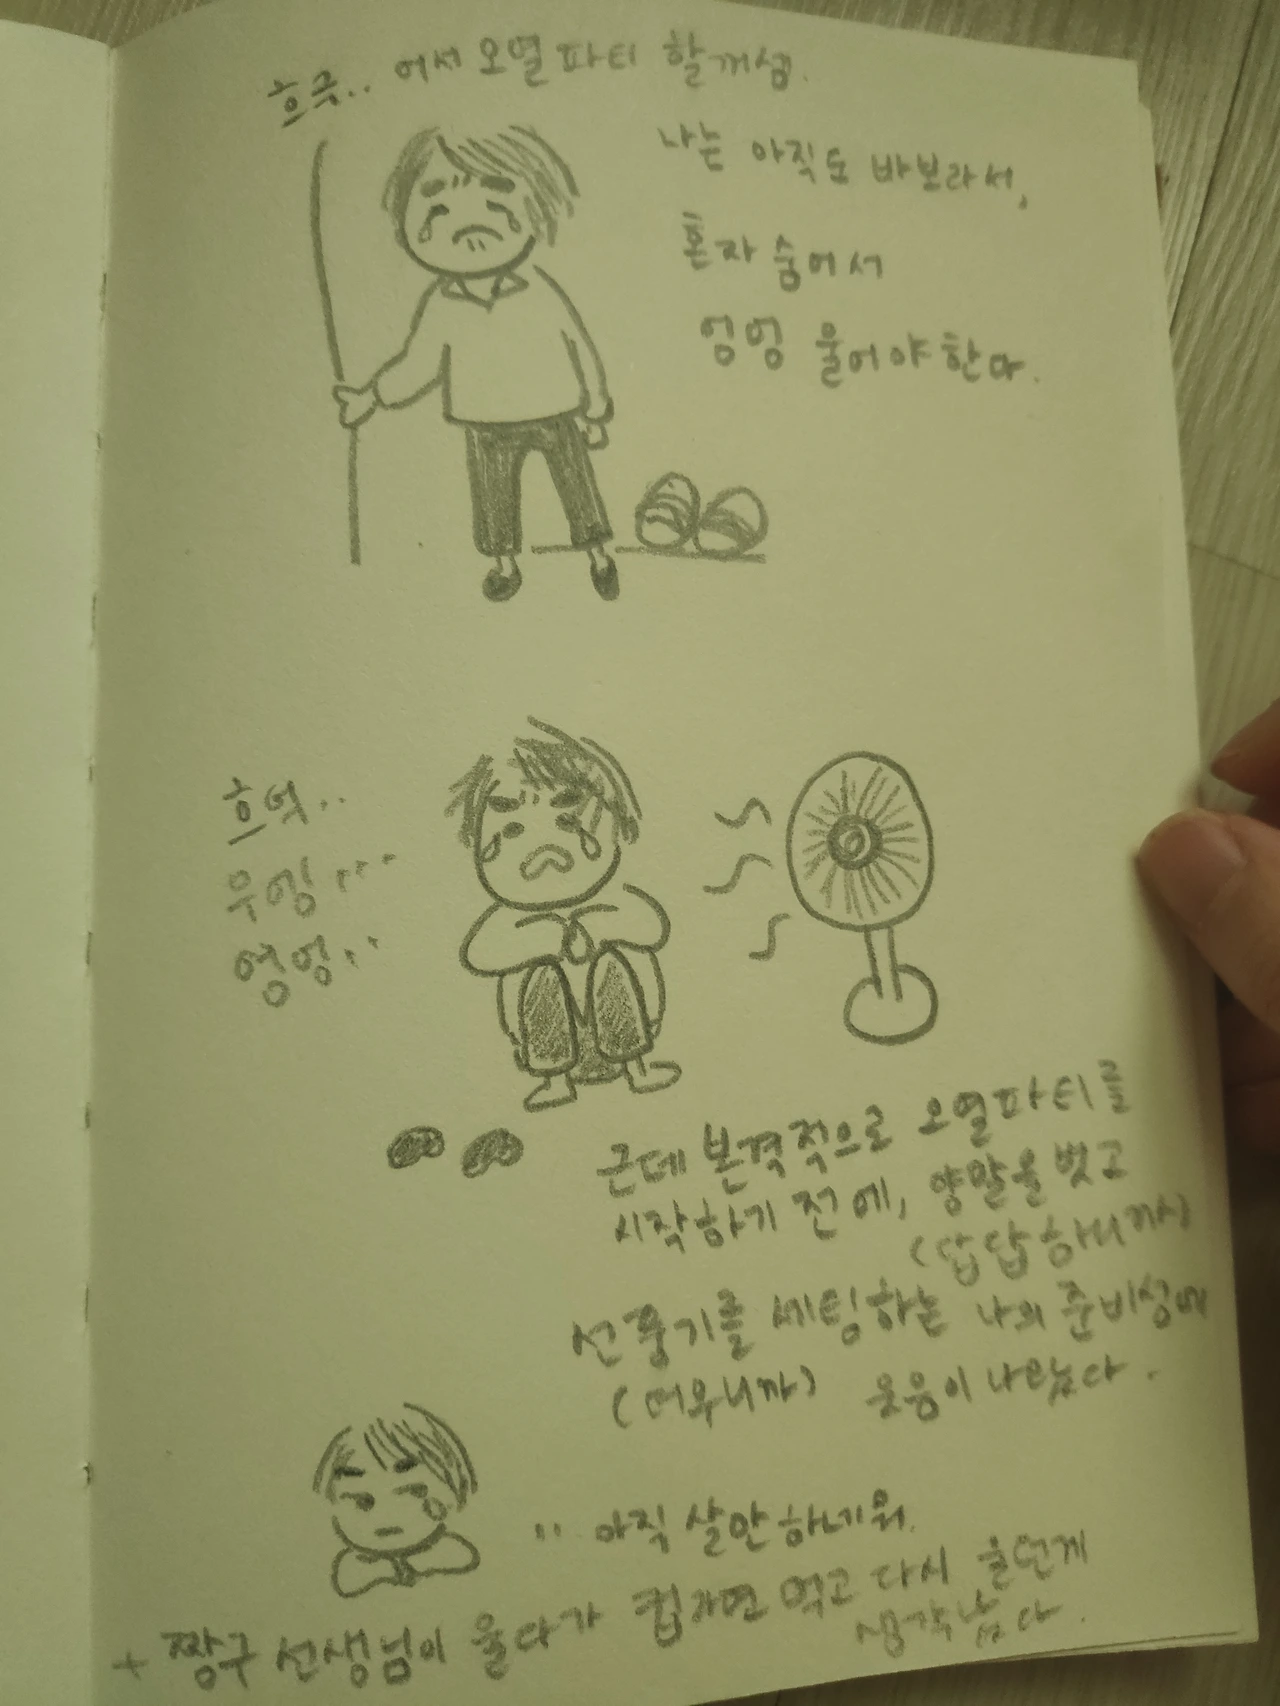 흐극.. 어서 오열파티 할꺼샘.
나는 아직도 바보라서,
혼자 숨어서
엉엉 울어야한다.
흐엌..
우엥...
엉엉..
근데 본격적으로 오열파티를
시작하기 전에, 양말을 벗고
(답답하니까)
선풍기를 세팅하는 나의 준비성에
(더우니까) 웃음이 나왔다.
.. 아직 살만하네 뭐.
+ 짱구 선생님이 울다가 컵라면 먹고 다시 울던게
생각났다.